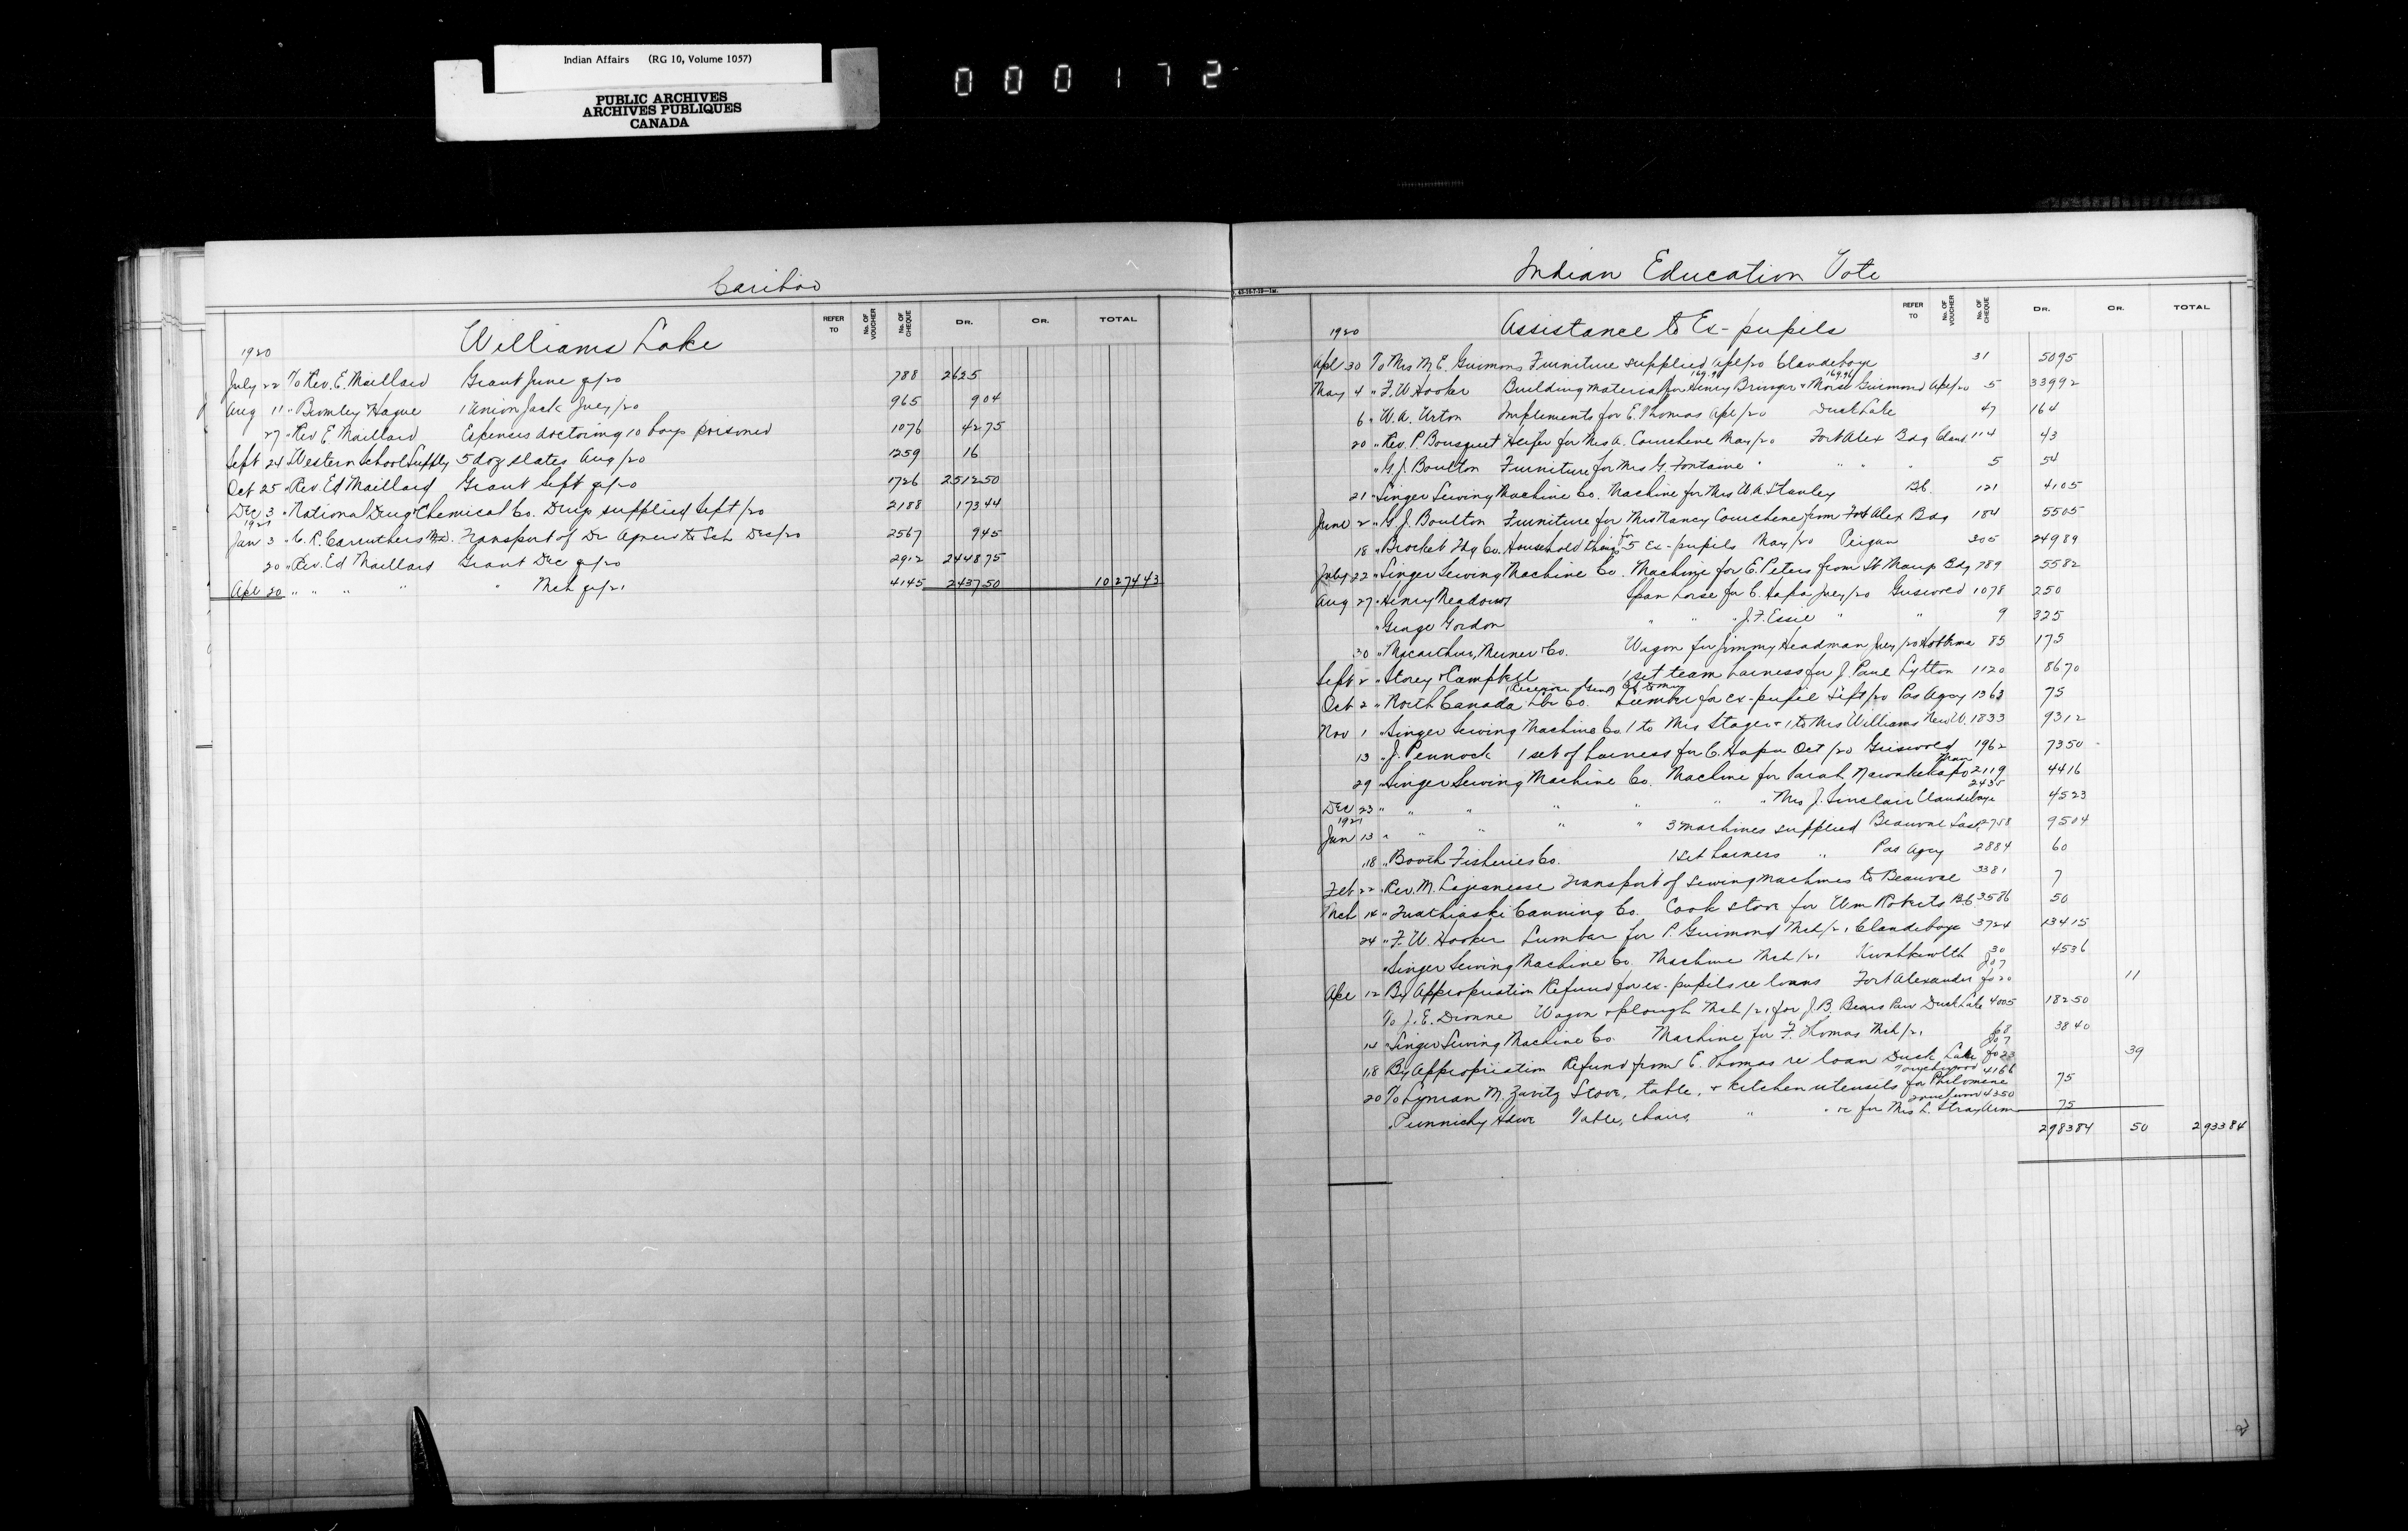 Indian Affairs (RG 10, Volume 1057)
PUBLIC ARCHIVES
ARCHIVES PUBLIQUES
CANADA
000172
Cariboo
REFER TO No. OF VOUCHER No. OF CHEQUE DR. CR. TOTAL
Williams Lake
1920
July 22 To Rev. E. Maillard Grant June q/20 788 2625
Aug 11 " Bromley Hague 1 Union Jack July/20 965 9 04
27 " Rev E. Maillard Expenses doctoring 10 boys poisoned 1076 42 75
Sept 24 " Western School Supply 5 doz slates Aug/20 1259 16
Oct 25 " Rev. Ed Maillard Grant Sept q/20 1726 2512 50
Dec 3 " National Drug & Chemical Co. Drugs supplied Sept/20 2188 173 44
1921
Jan 3 " C. R. Carruthers M.D. Transport of Dr Agnew to Sch Dec/20 2567 9 45
20 " Rev. Ed Maillard Grant Dec q/20 2912 2448 75
Apl 20 " " " " Mch q/21 4145 2437 50 10274 43
Indian Education Vote
REFER TO No. OF VOUCHER No. OF CHEQUE DR. CR. TOTAL
1920 Assistance to Ex-pupils
Apl 30 To Mrs M. E. Guimond Furniture supplied Apl/20 Clandeboye 31 50 95
169.96 169.96
May 4 " F. W. Hooker Building material for Henry Bringer & Moise Guimond Apl/20 5 339 92
6 " W. A. Urton Implements for E. Thomas Apl/20 Duck Lake 47 164
20 " Rev. P. Bousquet Heifer for Mrs A. Courchene May/20 Fort Alex Bdg Cland 114 43
" G. J. Boulton Furniture for Mrs G. Fontaine " " " " 5 54
21 " Singer Sewing Machine Co. Machine for Mrs W. A. Stanley B.C. 121 41 05
June 2 " G. J. Boulton Furniture for Mrs Nancy Courchene from Fort Alex Bdg 184 55 05
18 " Brocket Tdg Co. Household things for 5 ex-pupils May/20 Peigan 305 249 89
July 22 " Singer Sewing Machine Co. Machine for E. Peters from St Marys Bdg 789 55 82
Aug 27 " Henry Meadows Span horse for C. Hapa July/20 Griswold 1078 250
" George Gordon " " " J. F. Essie " " 9 325
30 " Macarthur, Merner & Co. Wagon for Jimmy Headman July/20 Hobbema 85 175
Sept 2 " Storey & Campbell 1 set team harness for J. Paul Lytton 1120 86 70
Oct 2 " North Canada Lbr Co. Lumber for ex-pupil Sept/20 Pas Agcy 1363 75
Nov 1 " Singer Sewing Machine Co. 1 to Mrs Stager & 1 to Mrs Williams New W. 1833 93 12
13 " J. Pennock 1 set of harness for C. Hapa Oct/20 Griswold 1962 73 50
29 " Singer Sewing Machine Co. Machine for Sarah 2119 44 16
Dec 23 " " " " " " " Mrs J. Sinclair Clandeboye 2435 45 23
1921
Jan 13 " " " " " 3 machines supplied Beauval Sask. 2758 95 04
18 " Booth Fisheries Co. 1 set harness " Pas Agcy 2884 60
Feb 22 " Rev. M. Lajeunesse Transport of sewing machines to Beauval 3381 7
Mch 14 " Quathiaski Canning Co. Cook stove for Wm Roberts B.C. 3586 50
24 " F. W. Hooker Lumber for P. Guimond Mch/21 Clandeboye 3724 134 15
" Singer Sewing Machine Co. Machine Mch/21 Kwahkewlth 30 45 36
Apl 12 By Appropriation Refund for ex-pupils re loans Fort Alexander J07 fo 20 11
To J. E. Dionne Wagon & plough Mch/21 for J. B. Bears Paw Duck Lake 4005 182 50
14 " Singer Sewing Machine Co. Machine for F. Thomas Mch/21 68 38 40
18 By Appropriation Refund from E. Thomas re loan Duck Lake J07 fo 23 39
20 To Lyman M. Zavitz Stove, table, & kitchen utensils for Philomene Touchwood 4166 75
" Punnichy Hdwe Table, chairs, " " &c for Mrs L. StrayArm Touchwood 4350 75
2983 84 50 2933 84